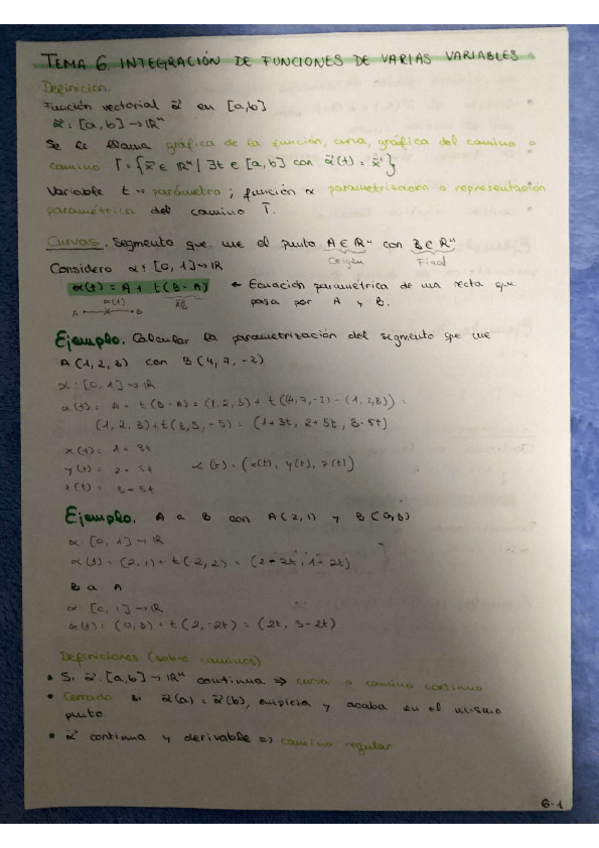 TEMA 6. INTEGRACIÓN DE FUNCIONES DE VARIAS VARIABLES
Definición.
Función vectorial α⃗ en [a,b]
α⃗ : [a,b] → ℝⁿ
Se le llama gráfica de la función, curva, gráfica del camino o
camino Γ = {x⃗ ∈ ℝⁿ | ∃t ∈ [a,b] con α⃗(t) = x⃗}
Variable t = parámetro ; función α parametrización o representación
paramétrica del camino Γ.
Curvas. Segmento que une el punto A ∈ ℝⁿ con B ∈ ℝⁿ
Origen Final
Considero α : [0,1] → ℝ
α(t) = A + t(B-A) ← Ecuación paramétrica de una recta que
α(t) AB pasa por A y B.
A B
Ejemplo. Calcular la parametrización del segmento que une
A(1,2,3) con B(4,7,-2)
α : [0,1] → ℝ
α(t) = A + t(B-A) = (1,2,3) + t((4,7,-2) - (1,2,3)) =
(1,2,3) + t(3,5,-5) = (1+3t, 2+5t, 3-5t)
x(t) = 1 + 3t
y(t) = 2 + 5t α(t) = (x(t), y(t), z(t))
z(t) = 3 - 5t
Ejemplo. A a B con A(2,1) y B(0,3)
α : [0,1] → ℝ
α(t) = (2,1) + t(-2,2) = (2-2t, 1+2t)
B a A
α : [0,1] → ℝ
α(t) = (0,3) + t(2,-2t) = (2t, 3-2t)
Definiciones (sobre caminos)
• Si α⃗ : [a,b] → ℝⁿ continua ⇒ curva o camino continuo
• Cerrado si α⃗(a) = α⃗(b), empieza y acaba en el mismo
punto
• α⃗ continua y derivable ⇒ camino regular
6-1